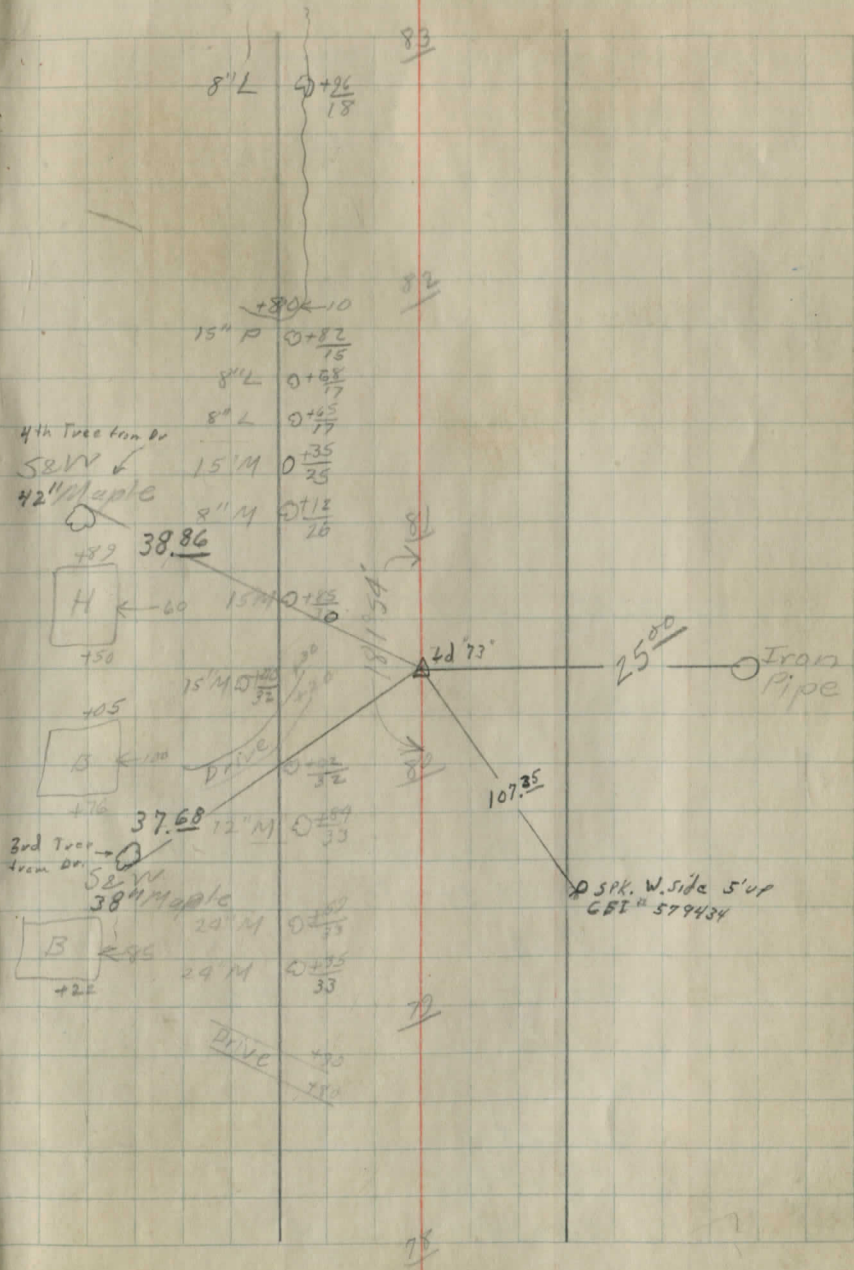 83
8"L +96
18
82
+80 ← 10
15" P +82
15
8"L +68
17
8" L +65
17
4th Tree from Dr
S&W
42" Maple
15"M +35
25
8" M +12
26
38.86
+89
H ← 60
+50
15M +85
81
181°54'
fd "73"
25.00
Iron
Pipe
15"M
32
+05
B ← 100
+76
Drive
32
80
107.35
37.68
12" M
33
3rd Tree
from Dr.
S&W
38" Maple
SPK. W. Side 5' up
CEI # 579434
24" M
33
B ← 85
+22
24" M +35
33
79
Drive +90
+80
78